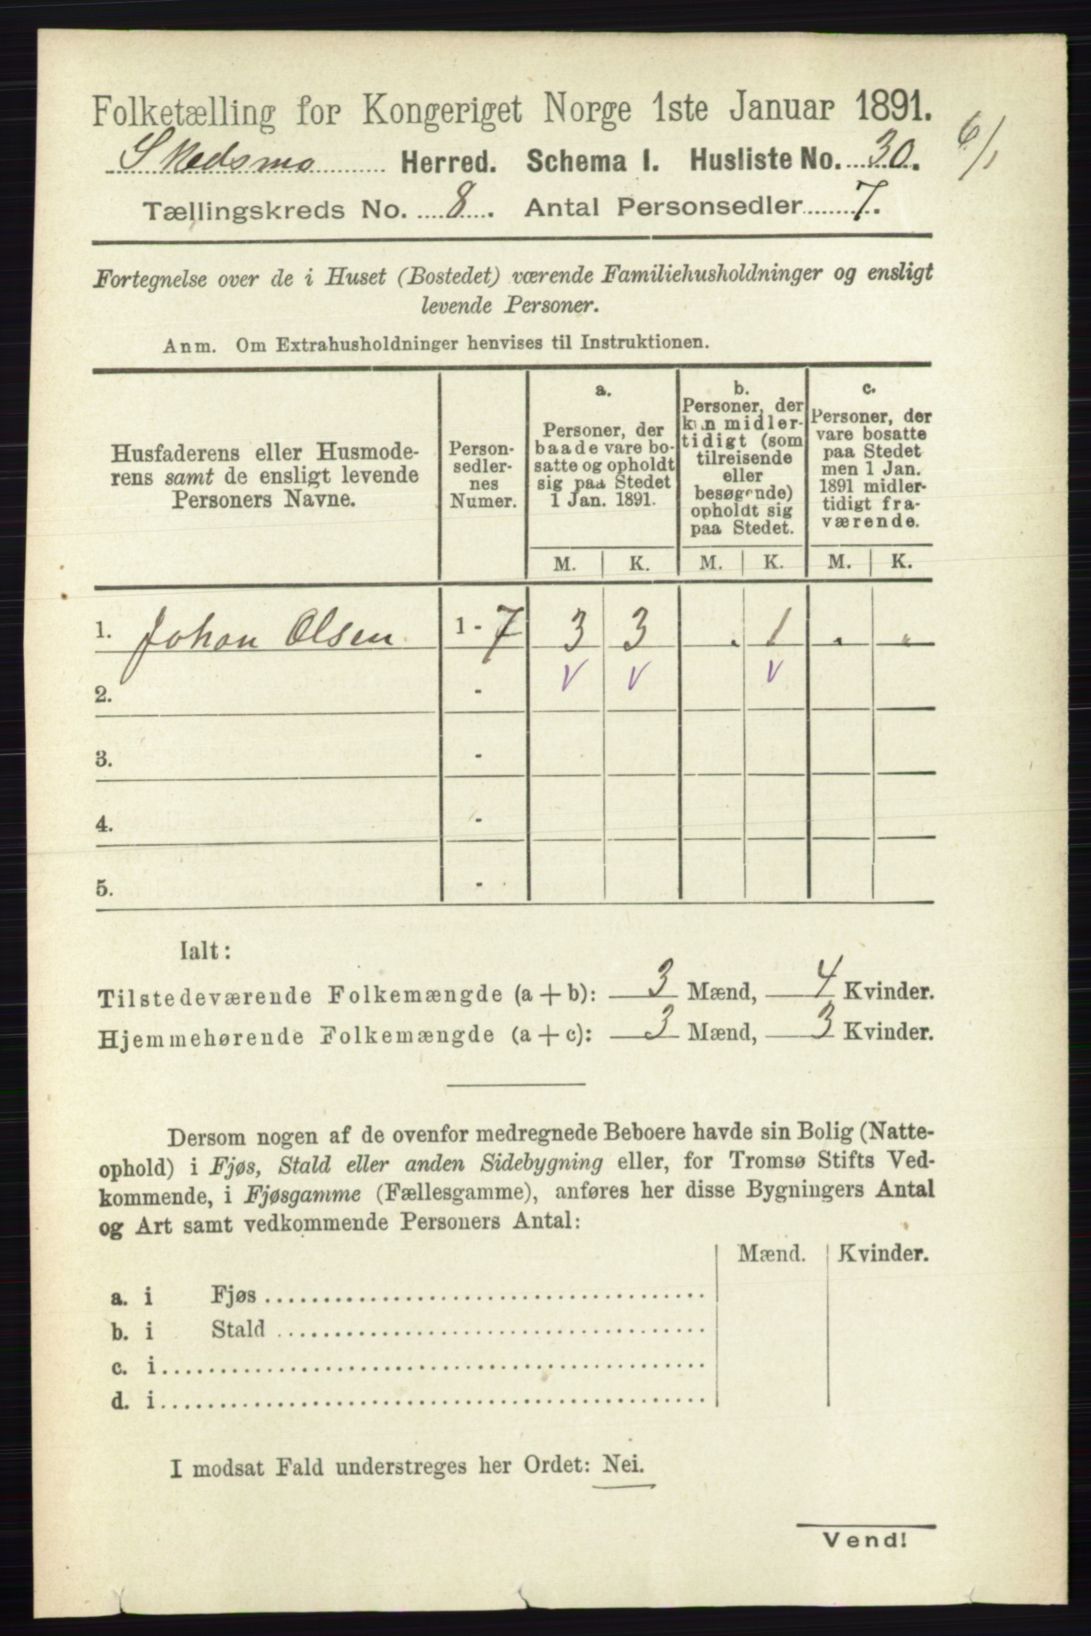 Folketælling for Kongeriget Norge 1ste Januar 1891.
Skedsmo Herred. Schema I. Husliste No. 30.
6/1
Tællingskreds No. 8. Antal Personsedler 7.
Fortegnelse over de i Huset (Bostedet) værende Familiehusholdninger og ensligt
levende Personer.
Anm. Om Extrahusholdninger henvises til Instruktionen.
Husfaderens eller Husmode-
rens samt de ensligt levende
Personers Navne.
Person-
sedler-
nes
Numer.
a.
Personer, der
baade vare bo-
satte og opholdt
sig paa Stedet
1 Jan. 1891.
b.
Personer, der
kun midler-
tidigt (som
tilreisende
eller
besøgende)
opholdt sig
paa Stedet.
c.
Personer, der
vare bosatte
paa Stedet
men 1 Jan.
1891 midler-
tidigt fra-
værende.
M. K. M. K. M. K.
1. Johan Olsen 1 - 7 3 3 . 1 . „
2. - V V V
3. -
4. -
5. -
Ialt:
Tilstedeværende Folkemængde (a + b): 3 Mænd, 4 Kvinder.
Hjemmehørende Folkemængde (a + c): 3 Mænd, 3 Kvinder.
Dersom nogen af de ovenfor medregnede Beboere havde sin Bolig (Natte-
ophold) i Fjøs, Stald eller anden Sidebygning eller, for Tromsø Stifts Ved-
kommende, i Fjøsgamme (Fællesgamme), anføres her disse Bygningers Antal
og Art samt vedkommende Personers Antal:
Mænd. Kvinder.
a. i Fjøs
b. i Stald
c. i
d. i
I modsat Fald understreges her Ordet: Nei.
Vend!